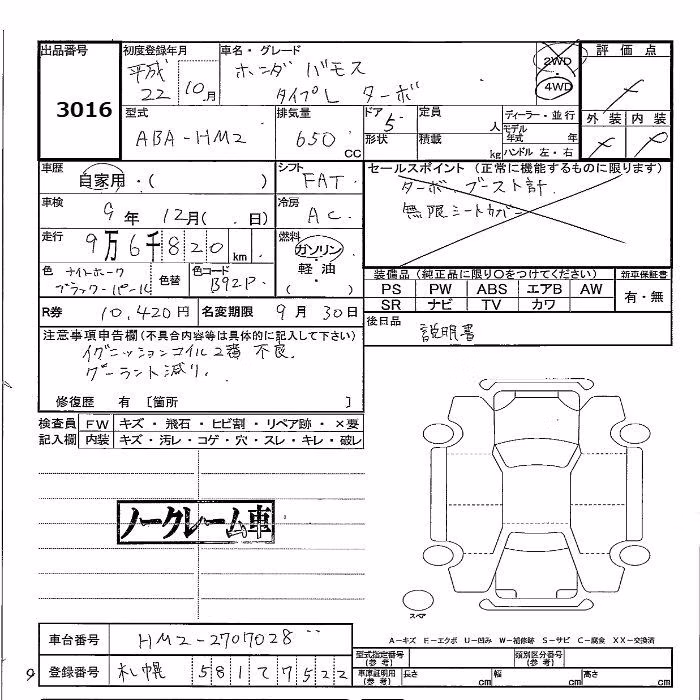 出品番号 初度登録年月 車名・グレード 評価点
3016
平成22 10月
ホンダ バモス
タイプL ターボ
2WD
4WD
外装 内装
型式 排気量 ドア 定員 ディーラー・並行
ABA-HM2 650 CC 5 人 モデル年式 年
形状 積載 kg ハンドル 左・右
車歴 シフト セールスポイント (正常に機能するものに限ります)
自家用・( ) FAT
ターボ ブースト計
無限シートカバー
車検 冷房
9年 12月( . 日) AC
走行 燃料
9万6千820km ガソリン
軽油
( )
色 ナイトホーク
ブラックパール
色替 色コード B92P
装備品 (純正品に限り○をつけてください) 新車保証書
PS PW ABS エアB AW 有・無
SR ナビ TV カワ
R券 10,420円 名変期限 9月30日
後日品 説明書
注意事項申告欄(不具合内容等は具体的に記入して下さい)
イグニッションコイル2番 不良.
クーラント減り.
修復歴 有 〔箇所 〕
検査員記入欄 FW キズ・飛石・ヒビ割・リペア跡・×要
内装 キズ・汚レ・コゲ・穴・スレ・キレ・破レ
ノークレーム車
スペア
A-キズ E-エクボ U-凹み W-補修跡 S-サビ C-腐食 XX-交換済
車台番号 HM2-2707028
型式指定番号(参考) 類別区分番号(参考)
登録番号 札幌 581 て 7522
車庫証明用(参考) 長さ cm 幅 cm 高さ cm
9